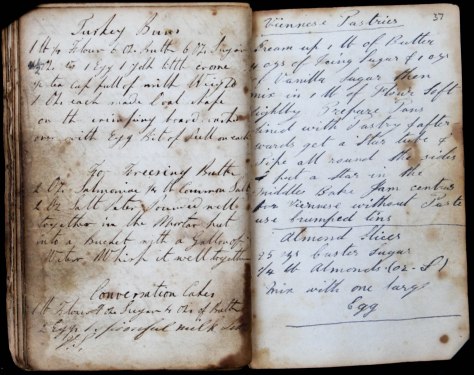 Turkey Buns
1 lb Flour 6 Ozs Butter 6 Ozs Sugar
1 Egg 1 Yolk
tea cup full of milk Weigh
1 Ozs each made boat shape
on the board washed
over with Egg Bit of Peel on each
For Freezing Bath
2 Oz Salmoniac ¼ lb Common Salt
2 Oz Salt Peter pounded well
together in the Mortar put
into a Bucket with a Gallon of
Water Whisk it well together
Conversation Cakes
1 lb Flour Sugar 4 Ozs of Butter
Eggs milk
Viennese Pastries 37
Cream up 1 lb of Butter
4 ozs of Icing Sugar & 1 ozs
of Vanilla Sugar then
mix in 1 lb of Flour Soft
lightly Prepare Pans
lined with Pastry after
wards get a Star tube &
pipe all round the sides
& put a Star in the
middles Bake Jam centres
for Viennese without Paste
use crumped tins
Almond Slices
25 ozs Caster Sugar
¼ lb Almonds
mix with one large
Egg